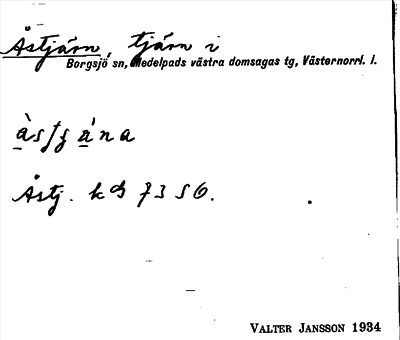 Åstjärn, tjärn i
Borgsjö sn, Medelpads västra domsagas tg, Västernorrl. l.
Åstj. kB 73 SO.
VALTER JANSSON 1934